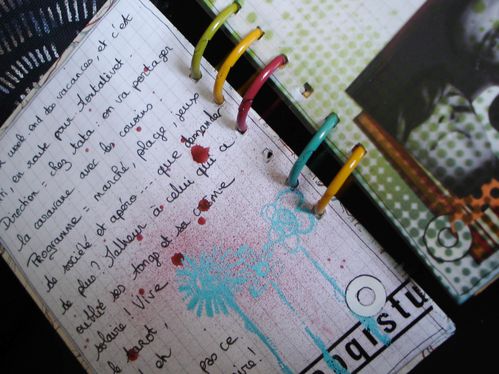 week end des vacances, et c'est
en route pour Hortativet.
Direction = chez tata on va partager
la caravane avec les cousins...
Programme = marché, plage, jeux
de société et apéro.... que demander
de plus? Malheur à celui qui a
oublié ses tongs et sa crème
solaire! Vive
le tarot,
eh pas ce
ogistu